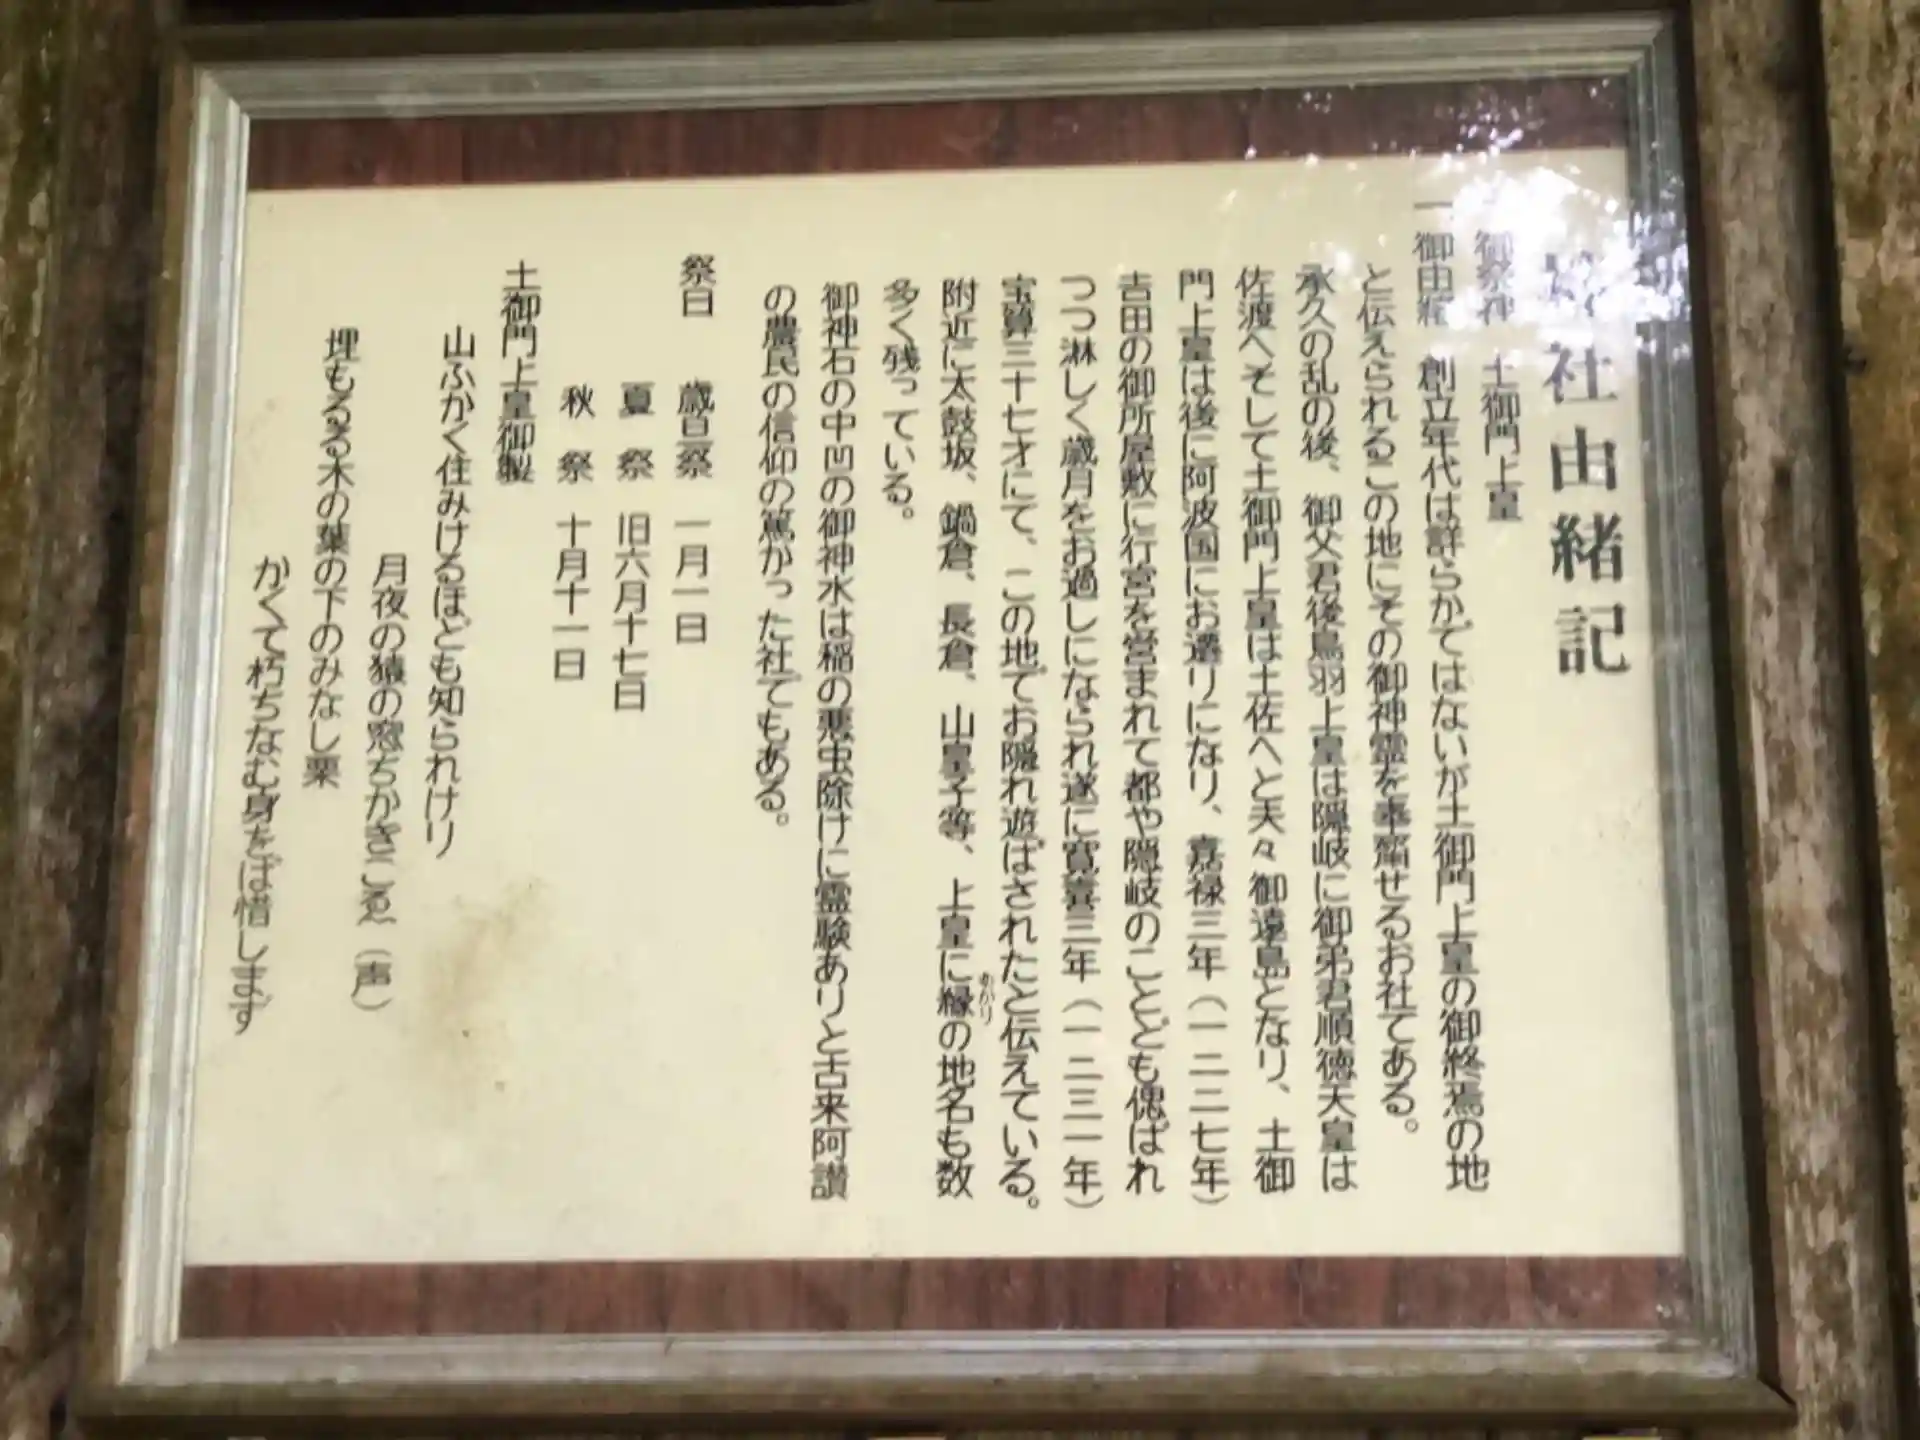 社由緒記
一御祭神 土御門上皇
一御由緒 創立年代は詳らかではないが土御門上皇の御終焉の地
と伝えられるこの地にその御神霊を奉齋せるお社である。
承久の乱の後、御父君後鳥羽上皇は隠岐に御弟君順徳天皇は
佐渡へそして土御門上皇は土佐へと夫々御遠島となり、土御
門上皇は後に阿波国にお遷りになり、嘉禄三年（一二二七年）
吉田の御所屋敷に行宮を営まれて都や隠岐のことども偲ばれ
つつ淋しく歳月をお過しになられ遂に寛喜三年（一二三一年）
宝算三十七才にて、この地でお隠れ遊ばされたと伝えている。
附近に太鼓坂、鍋倉、長倉、山皇子等、上皇に縁の地名も数
多く残っている。
御神石の中凹の御神水は稲の悪虫除けに霊験ありと古来阿讃
の農民の信仰の篤かった社でもある。
祭日 歳旦祭 一月一日
夏祭 旧六月十七日
秋祭 十月十一日
土御門上皇御製
山ふかく住みけるほども知られけり
月夜の猿の窓ちかきこゑ（声）
埋もるる木の葉の下のみなし栗
かくて朽ちなむ身をば惜します